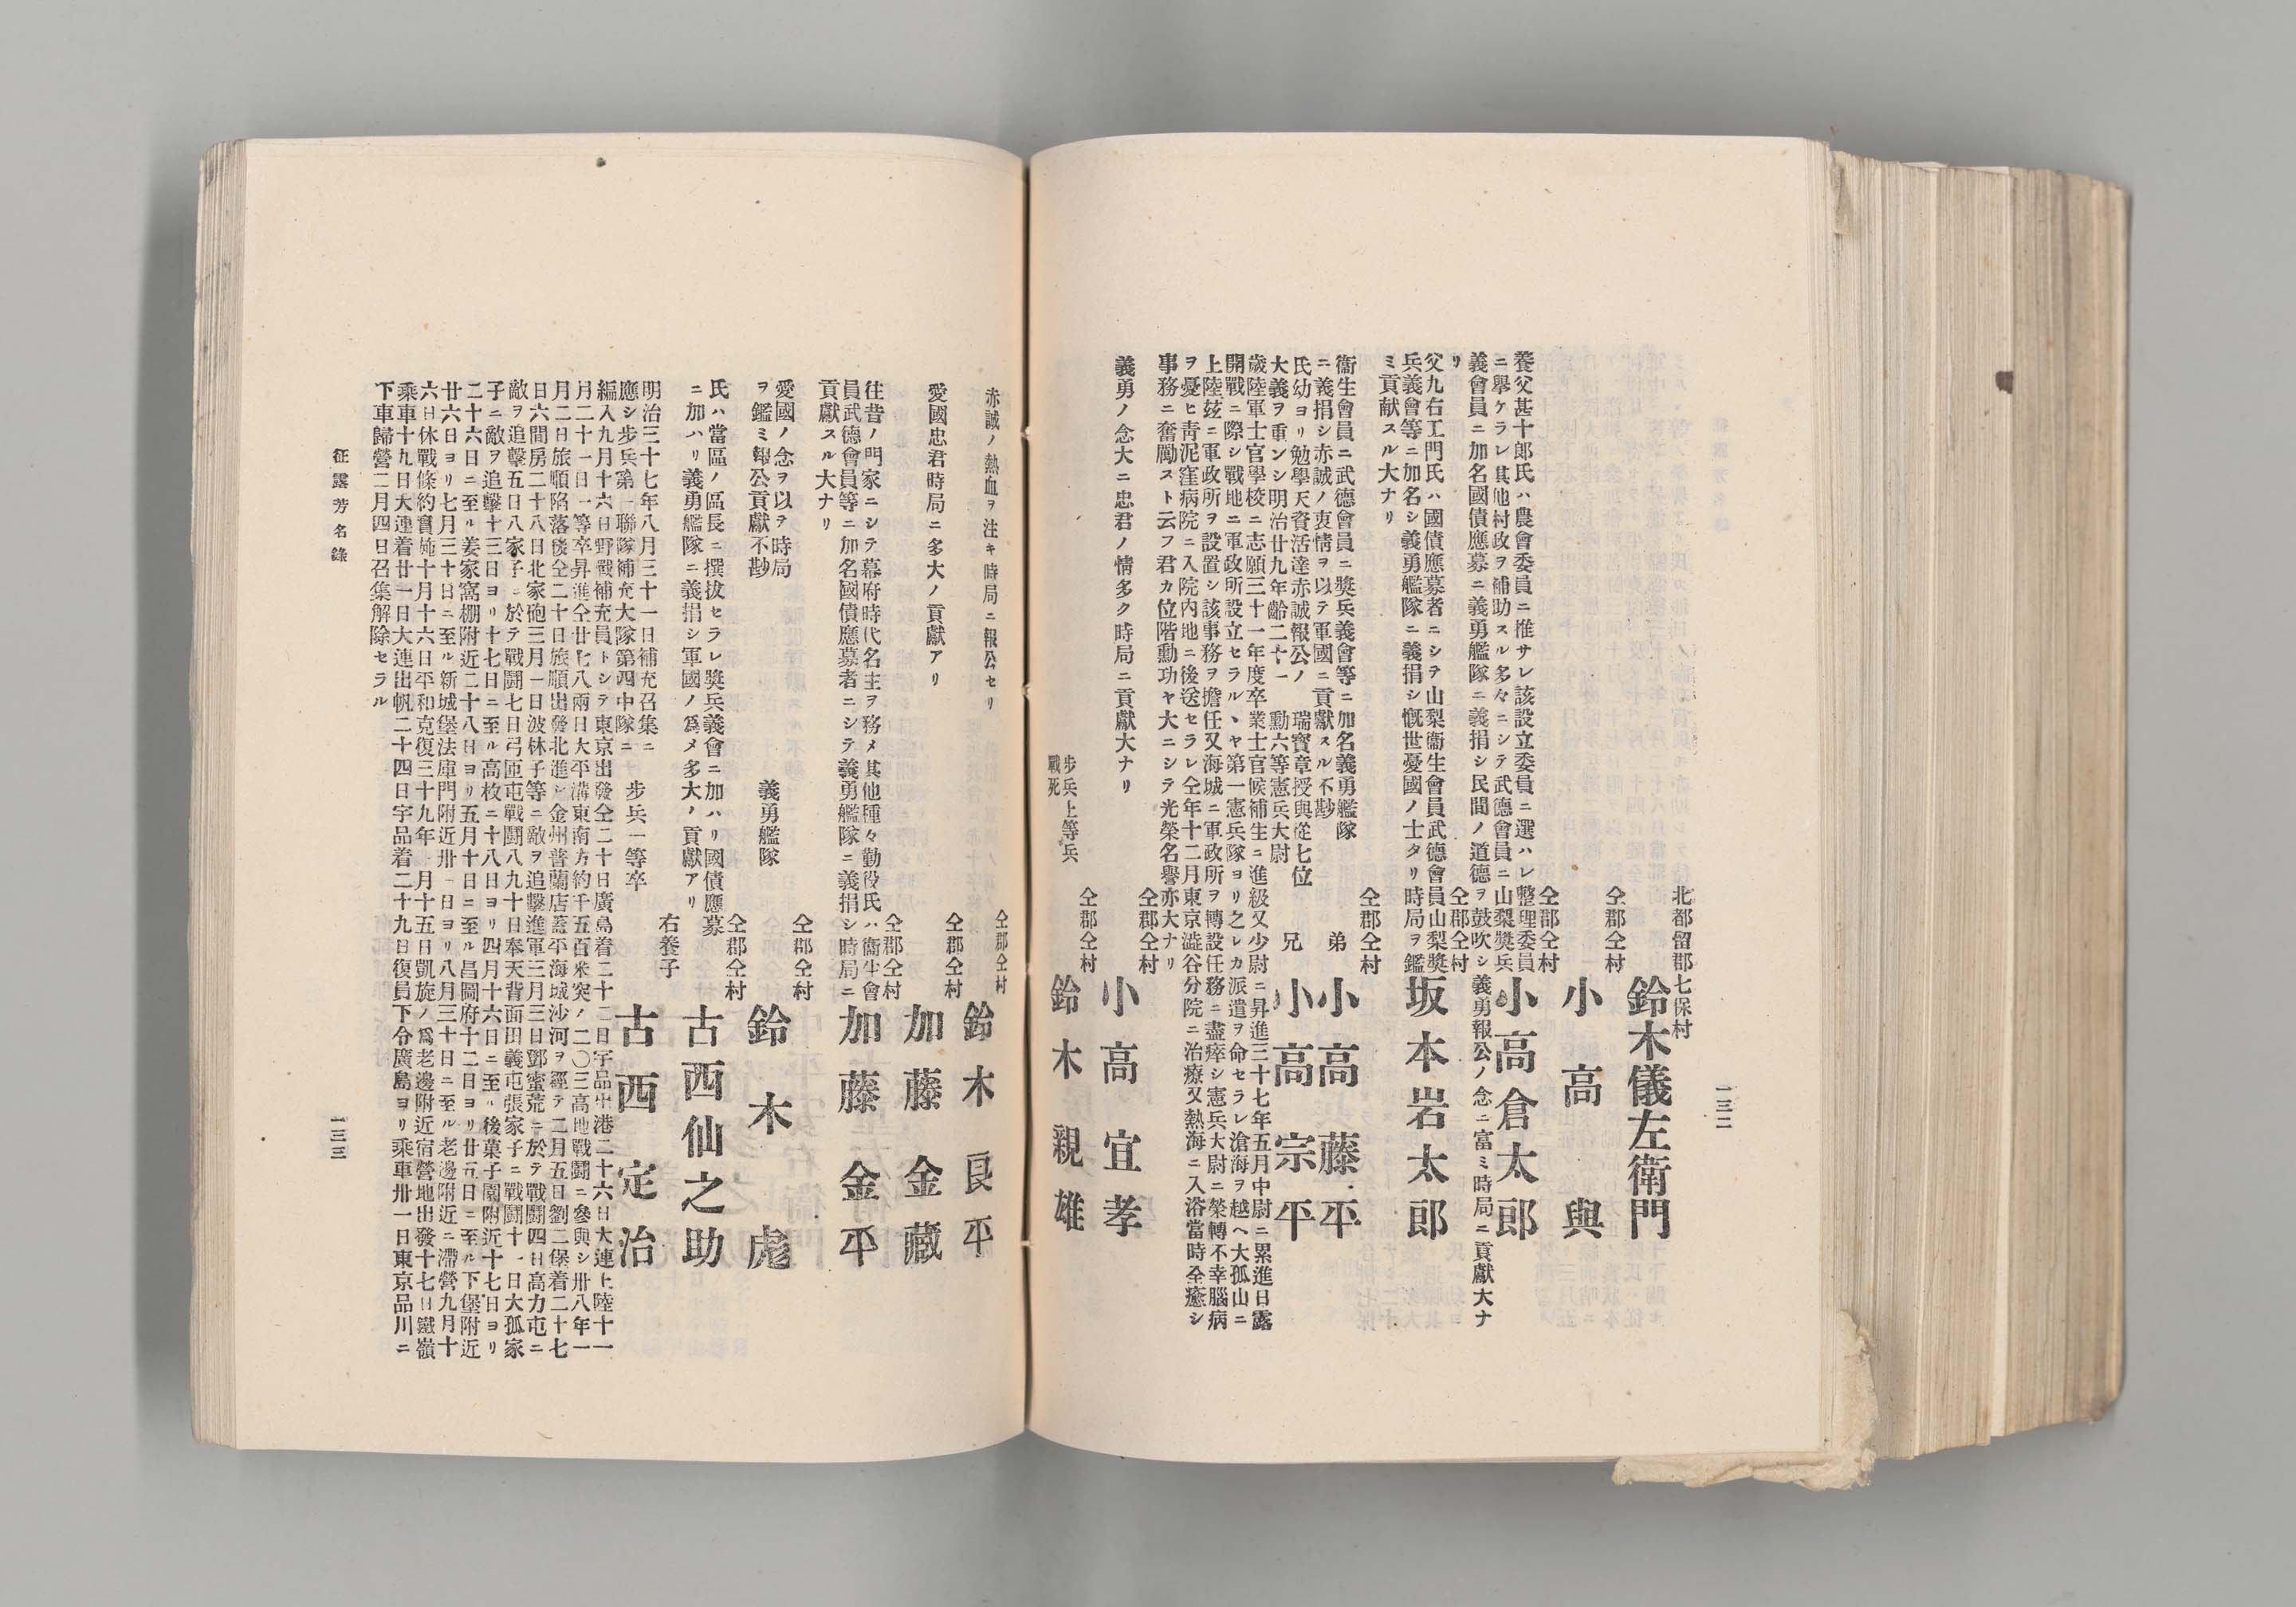 一三二
北都留郡七保村
鈴木儀左衛門
仝郡仝村
小高與
仝郡仝村
小高倉太郎
養父甚十郎氏ハ農會委員ニ推サレ該設立委員ニ選ハレ整理委員
ニ擧ケラレ其他村政ヲ補助スル多々ニシテ武德會員ニ山梨奬兵
義會員ニ加名國債應募ニ義勇艦隊ニ義捐シ民間ノ道德ヲ鼓吹シ義勇報公ノ念ニ富ミ時局ニ貢獻大ナ
リ
仝郡仝村
坂本岩太郎
父九右エ門氏ハ國債應募者ニシテ山梨衞生會員武德會員山梨奬
兵義會等ニ加名シ義勇艦隊ニ義捐シ慨世憂國ノ士タリ時局ヲ鑑
ミ貢献スル大ナリ
仝郡仝村
弟 小高藤平
兄 小高宗平
衞生會員ニ武德會員ニ奬兵義會等ニ加名義勇艦隊
ニ義捐シ赤誠ノ衷情ヲ以テ軍國ニ貢獻スル不尠
氏幼ヨリ勉學天資活達赤誠報公ノ 瑞寶章授與從七位
大義ヲ重ンシ明治廿九年齡二十一 勳六等憲兵大尉
歲陸軍士官學校ニ志願三十一年度卒業士官候補生ニ進級又少尉ニ昇進三十七年五月中尉ニ累進日露
開戰ニ際シ戰地ニ軍政所設立セラルヽヤ第一憲兵隊ヨリ之レカ派遣ヲ命セラレ滄海ヲ越ヘ大孤山ニ
上陸玆ニ軍政所ヲ設置シ該事務ヲ擔任又海城ニ軍政所ヲ轉設任務ニ盡瘁シ憲兵大尉ニ榮轉不幸腦病
ヲ憂ヒ靑泥窪病院ニ入院內地ニ後送セラレ仝年十二月東京澁谷分院ニ治療又熱海ニ入浴當時全癒シ
事務ニ奮勵スト云フ君カ位階勳功ヤ大ニシテ光榮名譽亦大ナリ
仝郡仝村
小高宜孝
義勇ノ念大ニ忠君ノ情多ク時局ニ貢獻大ナリ
仝郡仝村
步兵上等兵
戰死
鈴木親雄
仝郡仝村
鈴木良平
赤誠ノ熱血ヲ注キ時局ニ報公セリ
仝郡仝村
加藤金藏
愛國忠君時局ニ多大ノ貢獻アリ
仝郡仝村
加藤金平
往昔ノ門家ニシテ幕府時代名主ヲ務メ其他種々勤役氏ハ衞生會
員武德會員等ニ加名國債應募者ニシテ義勇艦隊ニ義捐シ時局ニ
貢獻スル大ナリ
仝郡仝村
鈴木彪
愛國ノ念ヲ以テ時局 義勇艦隊
ヲ鑑ミ報公貢獻不尠
仝郡仝村
古西仙之助
氏ハ當區ノ區長ニ撰拔セラレ奬兵義會ニ加ハリ國債應募
ニ加ハリ義勇艦隊ニ義捐シ軍國ノ爲メ多大ノ貢獻アリ
右養子
步兵一等卒
古西定治
明治三十七年八月三十一日補充召集ニ
應シ步兵第一聯隊補充大隊第四中隊ニ
編入九月十六日野戰補充員トシテ東京出發仝二十日廣島着二十二日宇品出港二十六日大連上陸十一
月二十一日一等卒昇進仝廿七八兩日大平溝東南方約千五百米突ノ二〇三高地戰鬪ニ參與シ卅八年一
月二日旅順陷落後仝二十日旅順出發北進シ金州普蘭店蓋平海城沙河ヲ經テ二月五日劉二堡着二十七
日六間房二十八日北家砲三月一日波林子等ニ敵ヲ追擊進軍三月三日鄧蜜荒ニ於テ戰鬪四日高力屯ニ
敵ヲ追擊五日八家子ニ於テ戰鬪七日弓匠屯戰鬪八九十日奉天背面田義屯張家子ニ戰鬪十一日大孤家
子ニ敵ヲ追擊十三日ヨリ十七日ニ至ル高枚ニ十八日ヨリ四月十六日ニ至ル後菓子園附近十七日ヨリ
二十六日ニ至ル姜家窩棚附近二十八日ヨリ五月十日ニ至ル昌圖府十二日ヨリ廿五日ニ至ル下堡附近
廿六日ヨリ七月三十日ニ至ル新城堡法庫門附近卅一日ヨリ八月三十日ニ至ル老邊附近ニ滯營九月十
六日休戰條約實施十月十六日平和克復三十九年一月十五日凱旋ノ爲老邊附近宿營地出發十七日鐵嶺
乘車十九日大連着廿一日大連出帆二十四日宇品着二十九日復員下令廣島ヨリ乘車卅一日東京品川ニ
下車歸營二月四日召集解除セラル
征露芳名錄
一三三